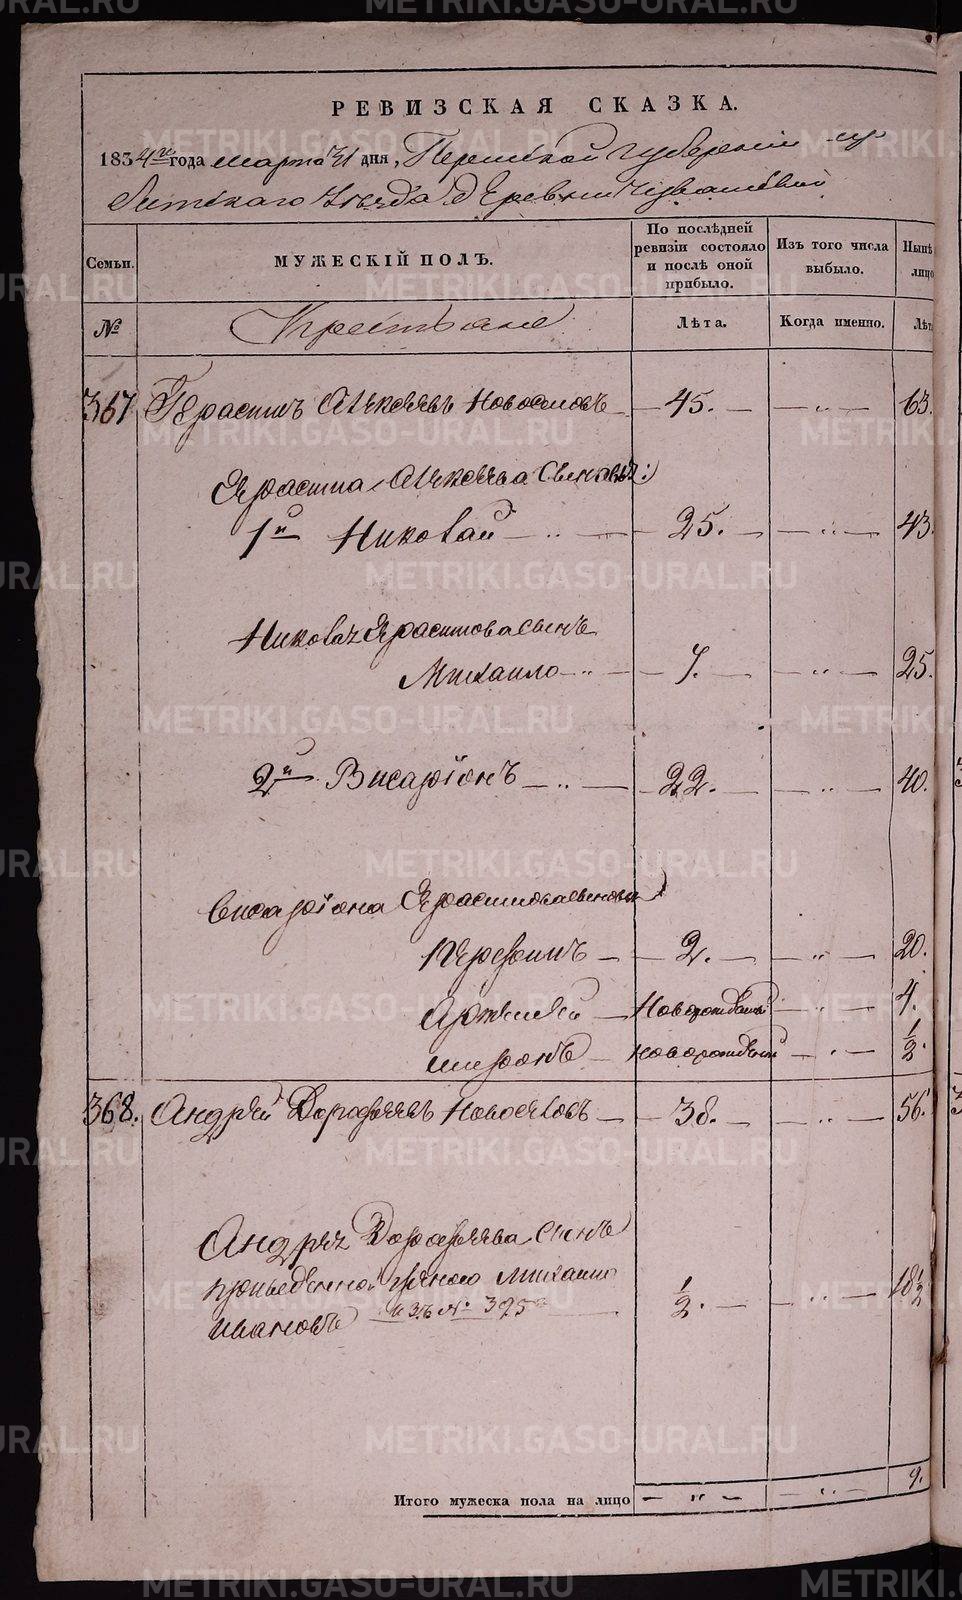 РЕВИЗСКАЯ СКАЗКА.
1834го года марта 31 дня, Пермской губернии
уезда деревни
Семьи. МУЖЕСКІЙ ПОЛЪ. По послѣдней ревизіи состояло и послѣ оной прибыло. Изъ того числа выбыло. Нынѣ лицо
№ Крестьяне Лѣта. Когда именно. Лѣт
367 Герасимъ Алексеевъ Новоселовъ 45. — „ — 63.
Ерасима Алексеева сыновья:
1й Николай — „ — 25. — „ — 43.
Николая Ерасимова сынъ
Михаило — „ — 7. — „ — 25.
2й Висаріонъ — „ — 22. — „ — 40.
Висаріона Ерасимова сыновья
2. — „ — 20.
Новорожденный — „ — 4.
Миронъ — новорожденный — „ — 1/2.
368. Андрей Дорофеевъ Новоселовъ — 38. — „ — 56.
Андрея Дорофеева сынъ
Михаило
Ивановъ и зъ № 395 1/2. — „ — 18 1/2
9.
Итого мужеска пола на лицо — „ — — „ —
METRIKI.GASO-URAL.RU